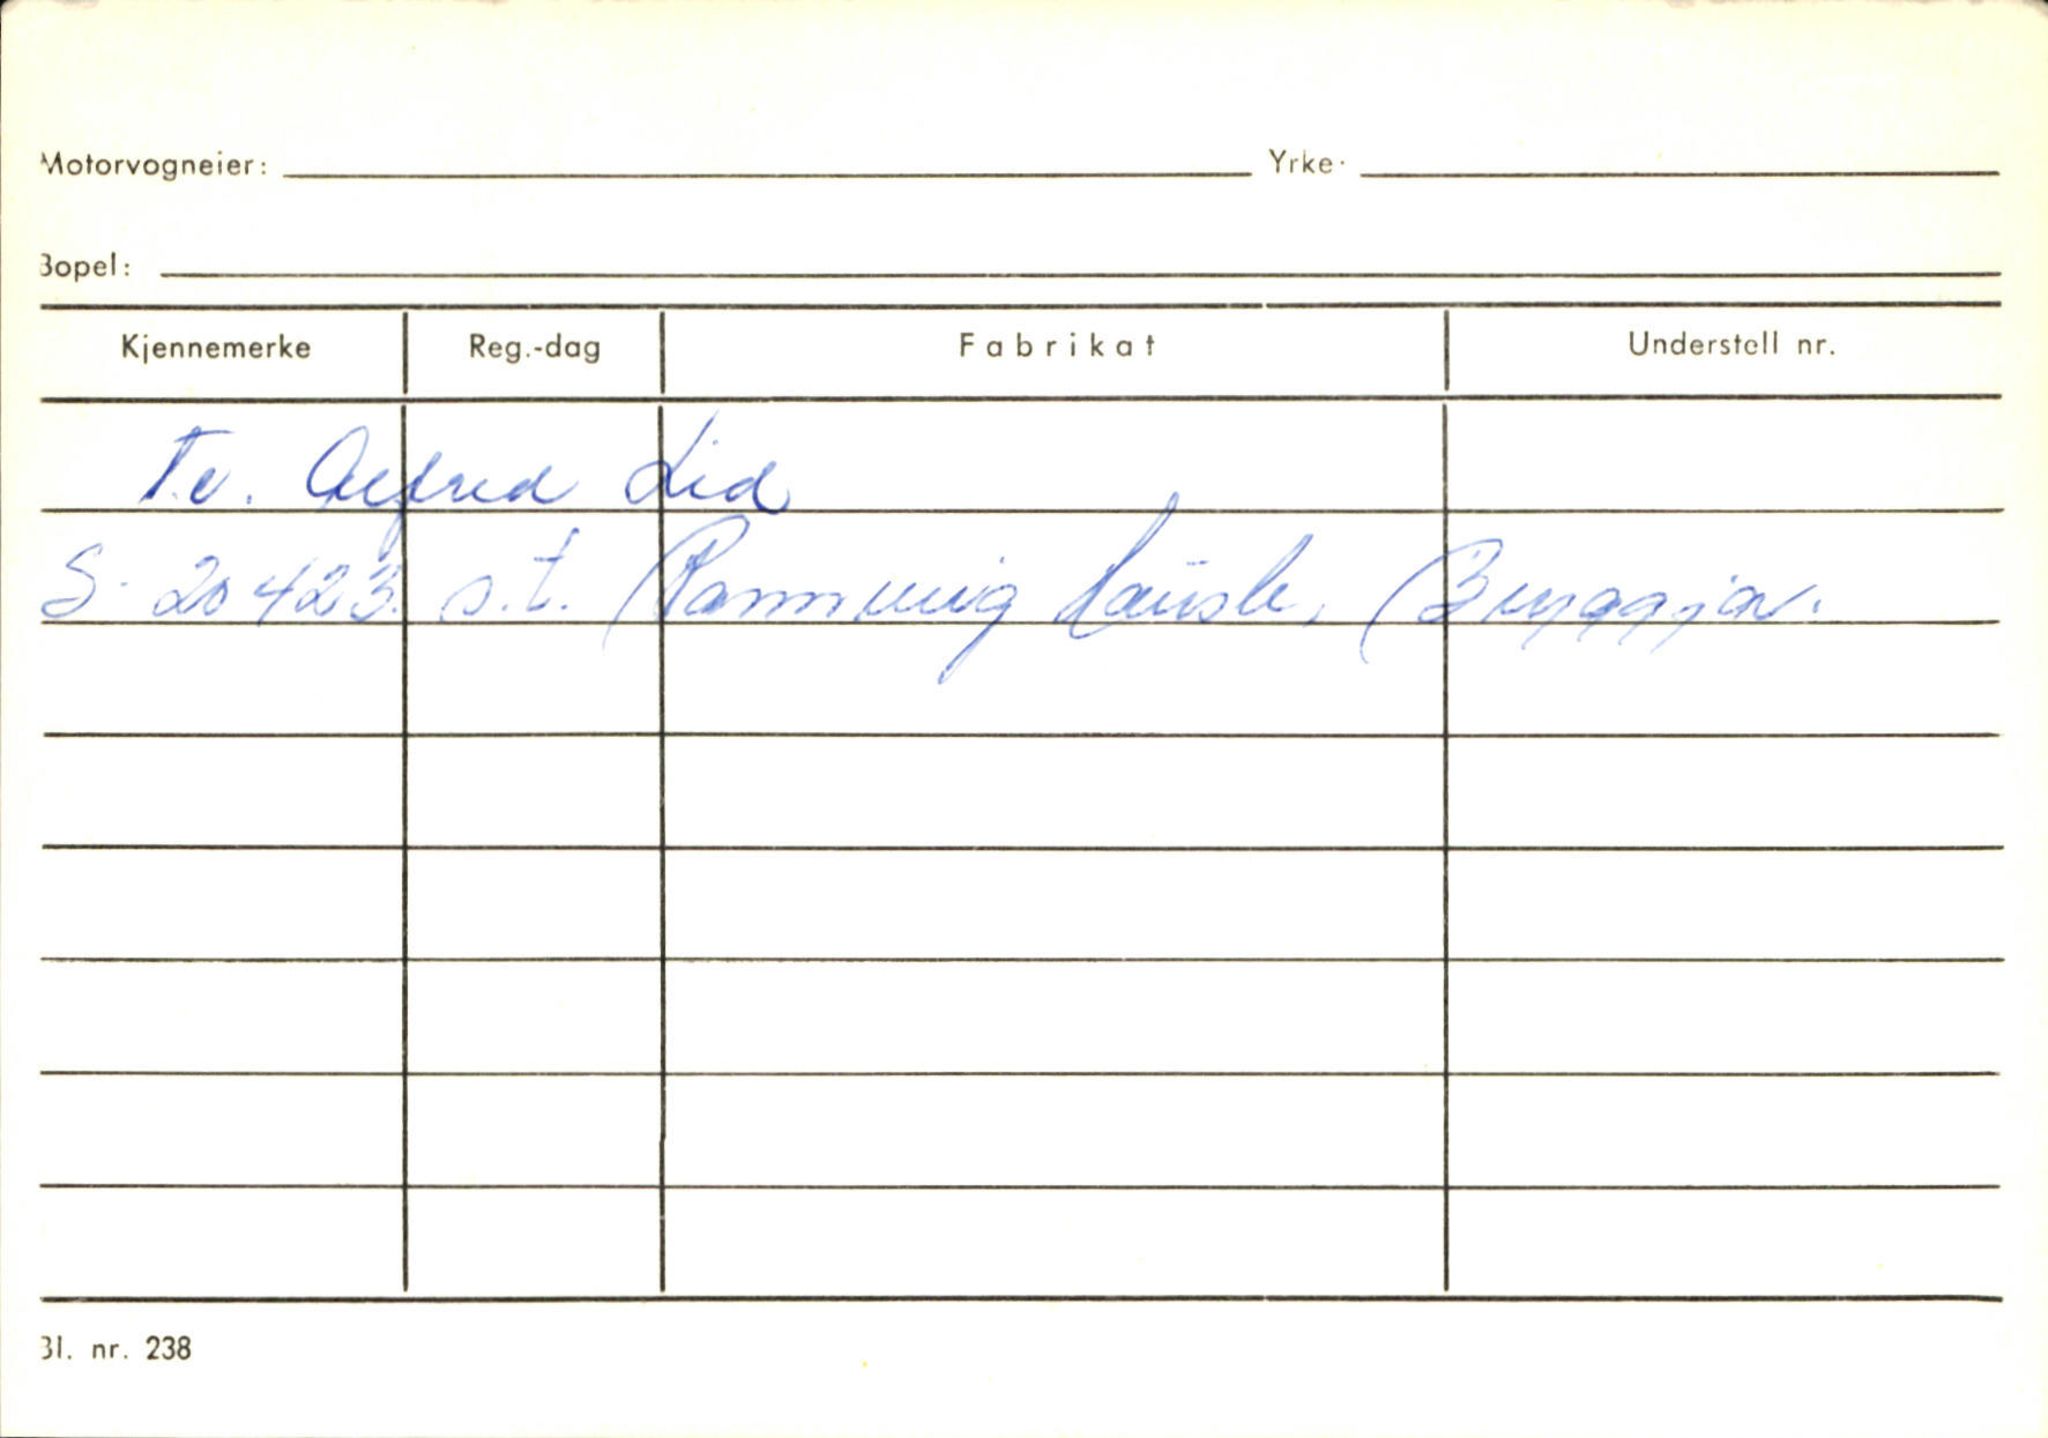 Motorvogneier: Yrke.
Bopel:
Kjennemerke Reg.-dag Fabrikat Understell nr.
T.v. Alfred Lid
S-20423. s.t. Rannveig Hausle, Bryggja.
Bl. nr. 238